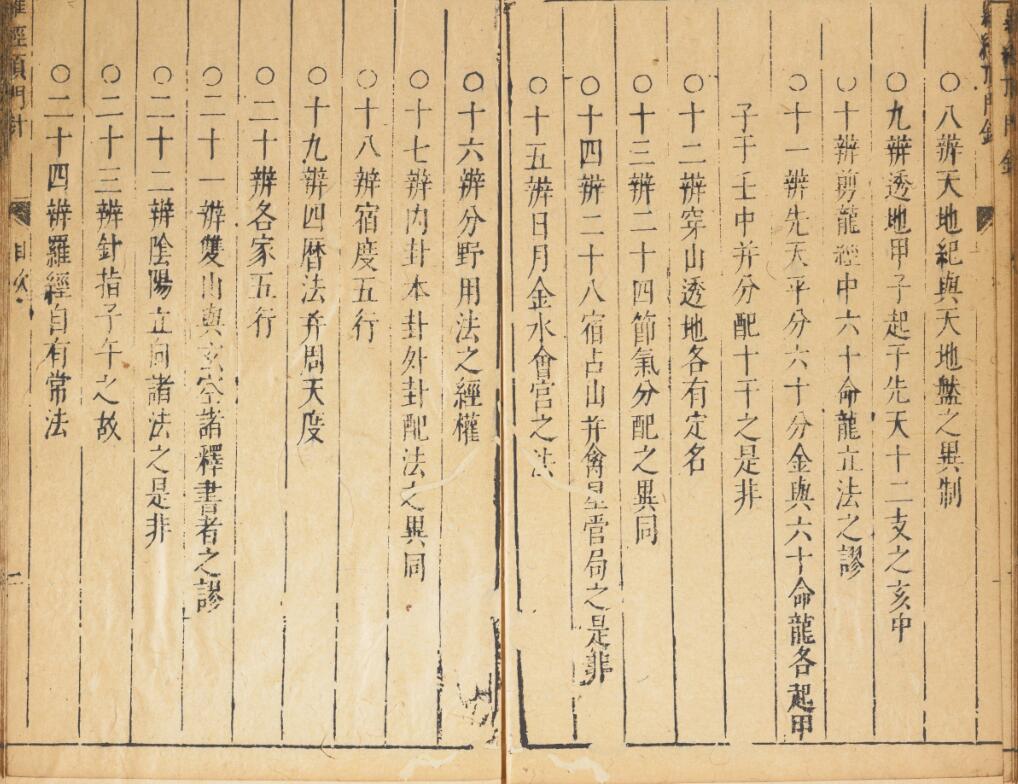 ○八辨天地紀與天地盤之異制
○九辨透地甲子起于先天十二支之亥中
○十辨剪龍經中六十命龍立法之謬
○十一辨先天平分六十分金與六十命龍各起甲
子于壬中并分配十干之是非
○十二辨穿山透地各有定名
○十三辨二十四節氣分配之異同
○十四辨二十八宿占山并禽星管局之是非
○十五辨日月金水會宫之法
○十六辨分野用法之經權
○十七辨内卦本卦外卦配法之異同
○十八辨宿度五行
○十九辨四曆法并周天度
○二十辨各家五行
○二十一辨雙山與玄空諸釋書者之謬
○二十二辨陰陽立向諸法之是非
○二十三辨針指子午之故
○二十四辨羅經自有常法
羅經頂門針
目次
二